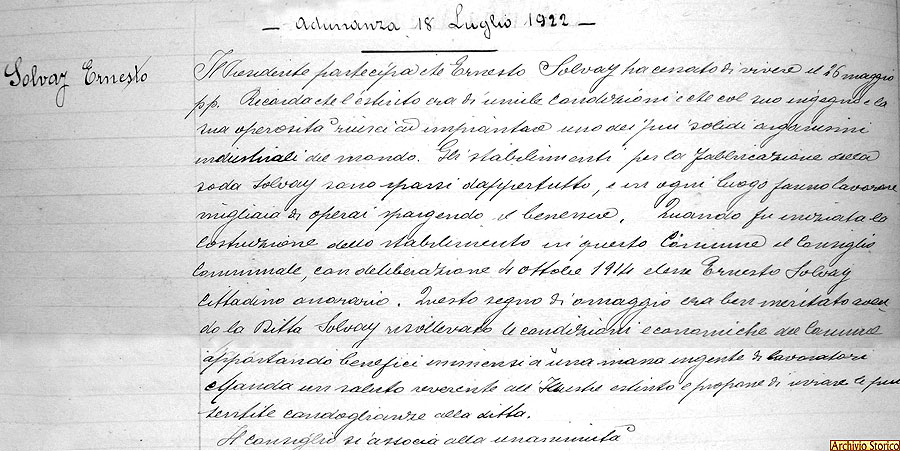 — Adunanza 18 Luglio 1922 —
Solvay Ernesto
Il Presidente partecipa che Ernesto Solvay ha cessato di vivere il 26 maggio
pp. Ricorda che l'estinto era di umile condizioni e che col suo ingegno e la
sua operosità riuscì ad impiantare uno dei più solidi organismi
industriali del mondo. Gli stabilimenti per la fabbricazione della
soda Solvay sono sparsi dappertutto, e in ogni luogo fanno lavorare
migliaia di operai spargendo il benessere. Quando fu iniziata la
costruzione dello stabilimento in questo Comune il Consiglio
Comunale, con deliberazione 4 ottobre 1914 elesse Ernesto Solvay
cittadino onorario. Questo segno di omaggio era ben meritato aven-
do la Ditta Solvay risollevato le condizioni economiche del Comune
apportando benefici immensi a una massa ingente di lavoratori
Manda un saluto reverente all'Illustre estinto e propone di inviare le più
sentite condoglianze alla ditta.
Il consiglio si associa alla unanimità
Archivio Storico